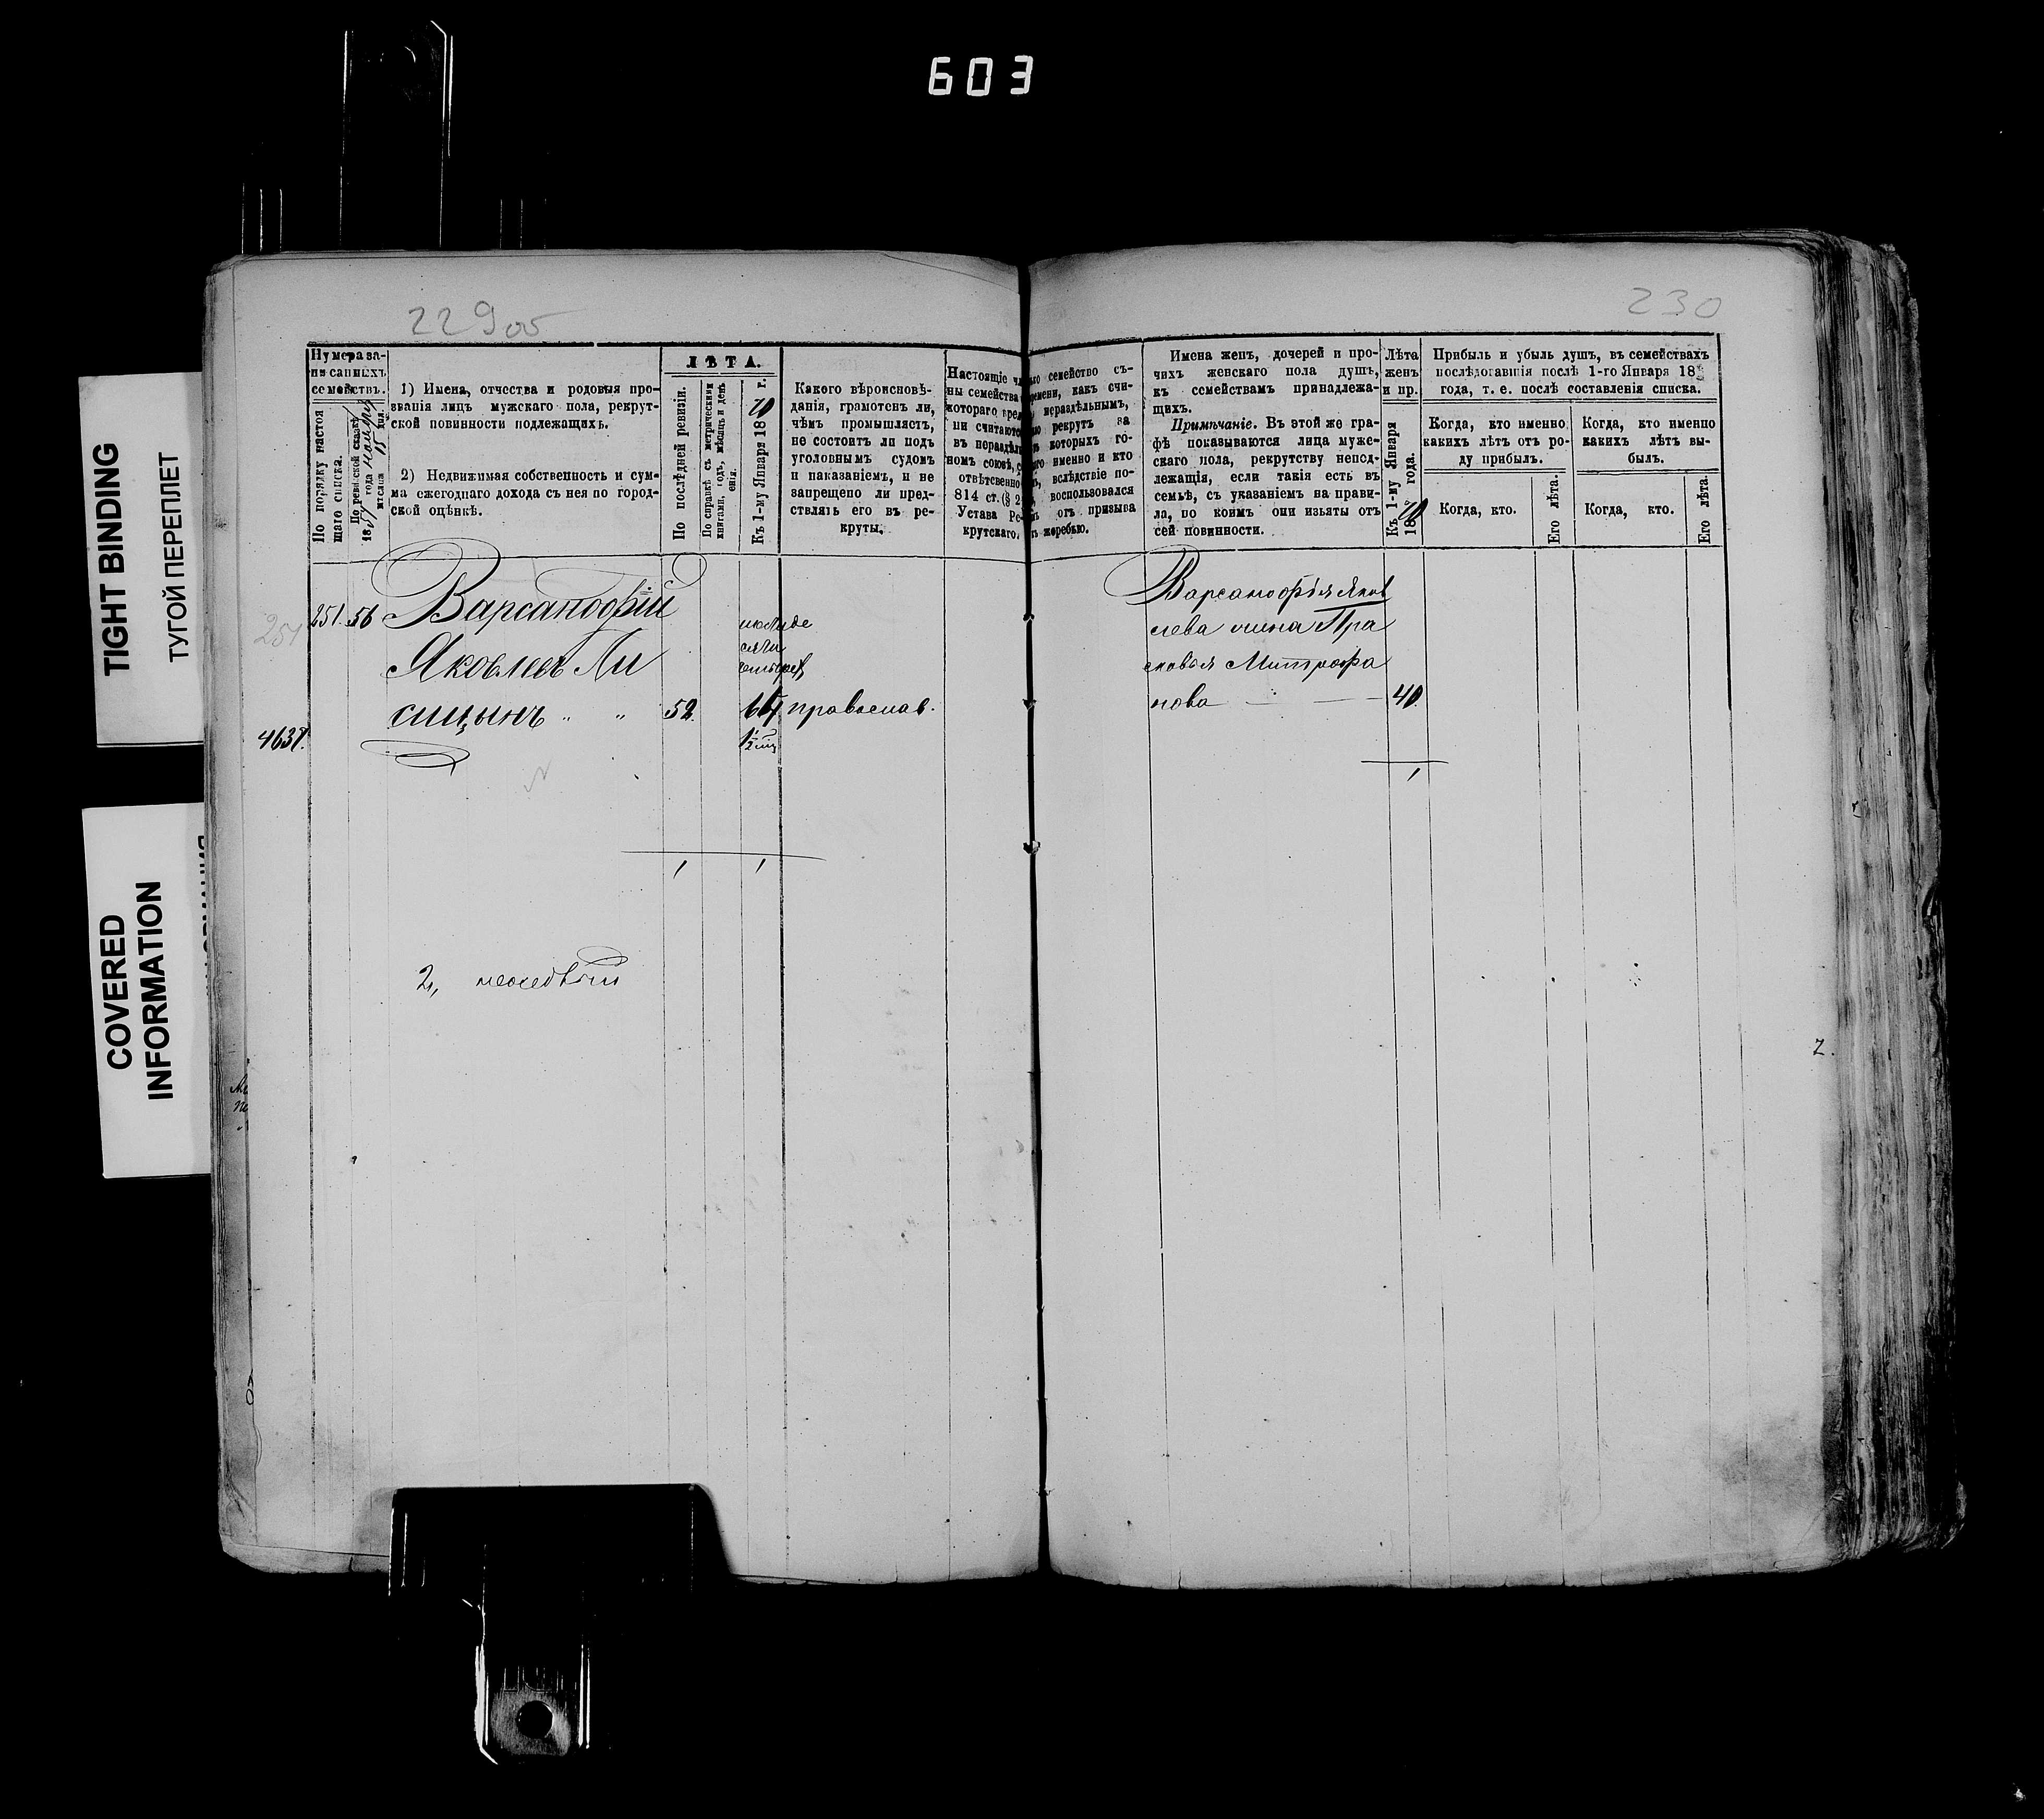 603
TIGHT BINDING
ТУГОЙ ПЕРЕПЛЕТ
COVERED
INFORMATION
229об
230
Нумера за-
писанныхъ
семействъ.
По порядку настоя
щаго списка.
По ревизской сказкѣ
1) Имена, отчества и родовыя про-
званія лицъ мужскаго пола, рекрут-
ской повинности подлежащихъ.
2) Недвижимая собственность и сум-
ма ежегоднаго дохода съ нея по город-
ской оцѣнкѣ.
ЛѢТА.
По послѣдней ревизіи.
По справкѣ съ метрическими
книгами, годъ, мѣсяцъ и день
Къ 1-му Января 1870 г.
Какого вѣроисповѣ-
данія, грамотенъ ли,
чѣмъ промышляетъ,
не состоитъ ли подъ
уголовнымъ судомъ
и наказаніемъ, и не
запрещено ли пред-
ставлять его въ ре-
круты.
Настоящіе
ны семейства
котораго вре
ни считаютс
въ нераздѣль
номъ союзѣ,
отвѣтственно
814 ст. (§ 2
Устава Ре
крутскаго.
семейство съ-
ремени, какъ счи-
нераздѣльнымъ,
рекрутъ за
которыхъ го-
именно и кто
вслѣдствіе по-
воспользовался
отъ призыва
жеребью.
Имена женъ, дочерей и про-
чихъ женскаго пола душъ,
къ семействамъ принадлежа-
щихъ.
Примѣчаніе. Въ этой же гра-
фѣ показываются лица муже-
скаго пола, рекрутству непод-
лежащія, если такія есть въ
семьѣ, съ указаніемъ на прави-
ла, по коимъ они изъяты отъ
сей повинности.
Лѣта
женъ
и пр.
Къ 1-му Января
1870 года.
Прибыль и убыль душъ, въ семействахъ
послѣдовавшія послѣ 1-го Января 18
года, т. е. послѣ составленія списка.
Когда, кто именно
какихъ лѣтъ отъ ро-
ду прибылъ.
Когда, кто именно
какихъ лѣтъ вы-
былъ.
Когда, кто.
Его лѣта.
Когда, кто.
Его лѣта.
251
251. 56
Варсанофій
Яковлевъ Ли
сицынъ " " 52. 64 православ.
4637.
1 1
2, неимѣетъ
Варсанофія Яков
лева жена Пра
сковья Митрофа
нова 40.
1